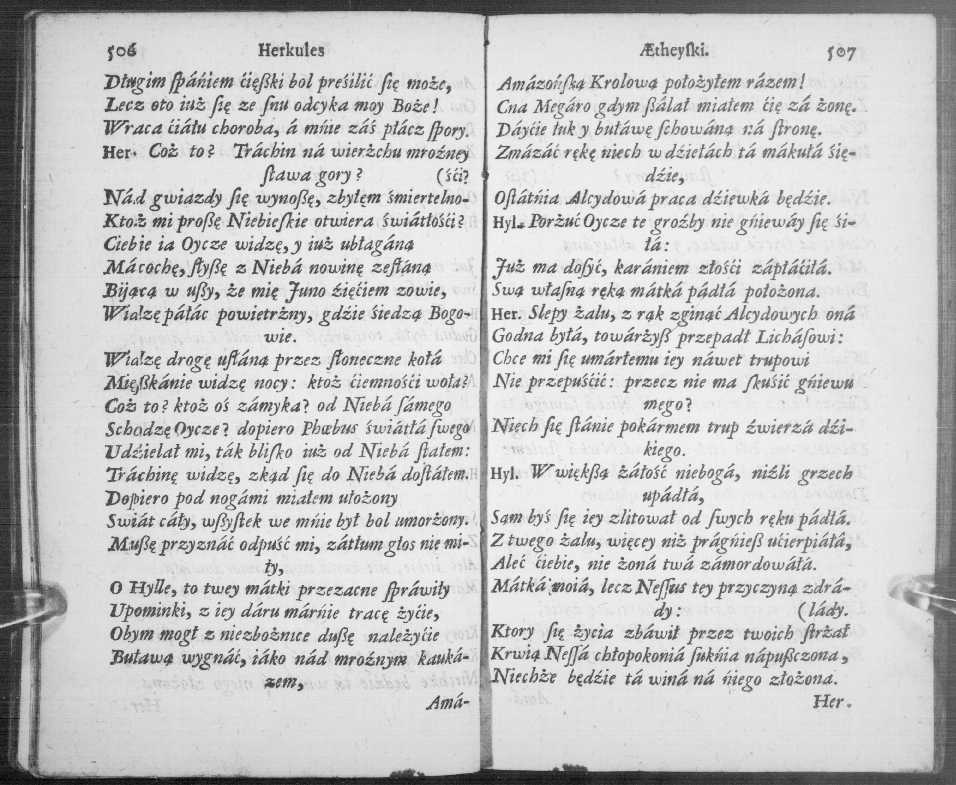 506 Herkules
Długim ſpáńiem ćięßki bol preśilić ſię może,
Lecz oto iuż ſię ze ſnu odcyka moy Boże!
Wraca ćiáłu choroba, á mńie záś płácz ſpory.
Her. Coż to? Tráchin ná wierżchu mroźney
ſława gory? (śći?
Nád gwiazdy ſię wynoßę, zbyłem śmiertelno-
Ktoż mi proßę Niebieſkie otwiera świátłośći?
Ciebie ia Oycze widzę, y iuż ubłagáną
Mácochę, ſłyßę z Niebá nowinę zeſłáną
Bijącą w ußy, że mię Juno źięćiem zowie,
Widzę páłác powietrżny, gdźie śiedzą Bogo-
wie.
Widzę drogę uſłáną przez ſłoneczne kołá
Mięßkánie widzę nocy: ktoż ćiemnośći woła?
Coż to? ktoż oś zámyka? od Niebá ſámego
Schodzę Oycze? dopiero Phœbus świátłá ſwego
Udźielał mi, ták bliſko iuż od Niebá ſtałem:
Tráchinę widzę, zkąd ſię do Niebá doſtáłem.
Dopiero pod nogámi miałem ułożony
Swiát cáły, wßyſtek we mńie był bol umorżony.
Mußę przyznáć odpuść mi, zátłum głos nie mi-
ły,
O Hylle, to twey mátki przezacne ſpráwiły
Upominki, z iey dáru márńie tracę żyćie,
Obym mogł z niezbożnıce dußę należyćie
Buławą wygnáć, iáko nád mroźnym kauká-
zem,
Amá-
Ætheyſki. 507
Amázońſką Krolową położyłem rázem!
Cna Megáro gdym ßálał miałem ćię zá żonę.
Dáyćie łuk y buławę ſchowáną ná ſtronę.
Zmázáć rękę niech w dźiełách tá mákułá śię-
dźie,
Oſtátńia Alcydowá praca dźiewká będźie.
Hyl. Porżuć Oycze te groźby nie gńiewáy ſię śi-
łá:
Już ma doſyć, karániem złośći zápłáćiłá.
Swą właſną ręką mátká pádłá położona.
Her. Slepy żalu, z rąk zginąć Alcydowych oná
Godna byłá, towárżyß przepadł Licháſowi:
Chce mi ſię umárłemu iey náwet trupowi
Nie przepuśćić: przecz nie ma ſkuśić gńiewu
mego?
Niech ſię ſtánie pokármem trup źwierzá dźi-
kiego.
Hyl. W więkßą żáłość niebogá, niźli grzech
upádłá,
Sąm byś ſię iey zlitował od ſwych ręku pádłá.
Z twego żalu, więcey niż prágńieß ućierpiáłá,
Aleć ćiebie, nie żoná twá zámordowáłá.
Mátká moiá, lecz Neſſus tey przyczyną zdrá-
dy: (łády.
Ktory ſię życia zbáwił przez twoich ſtrżał
Krwią Neſſá chłopokoniá ſukńia nápußczona,
Niechże będźie tá winá ná ńiego złożona.
Her.